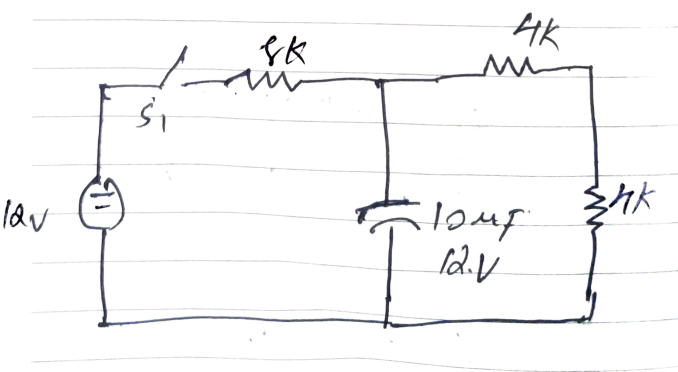 8K
4K
S1
12V
10µF
12.V
4K